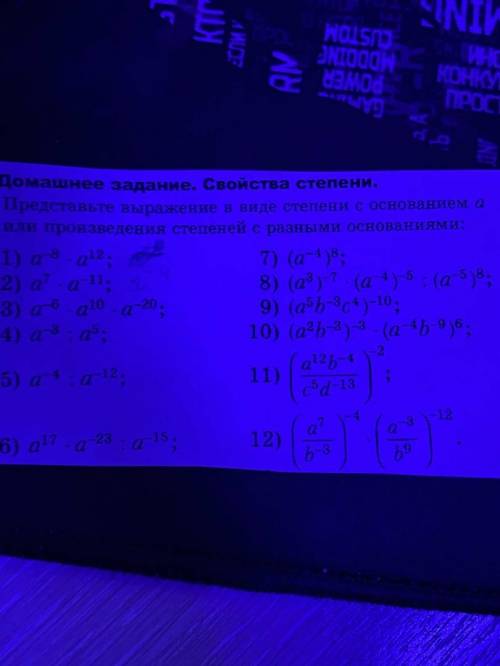 КТО
CUSTOM
MODDING
POWER
Домашнее задание. Свойства степени.
Представьте выражение в виде степени с основанием a
или произведения степеней с разными основаниями:
1) a⁻⁸ · a¹²;
2) a⁷ · a⁻¹¹;
3) a⁻⁶ · a¹⁰ · a⁻²⁰;
4) a⁻³ : a⁵;
5) a⁻⁴ : a⁻¹²;
6) a¹⁷ · a⁻²³ : a⁻¹⁵;
7) (a⁻⁴)⁸;
8) (a³)⁻⁷ · (a⁻⁴)⁻⁵ : (a⁻⁵)⁸;
9) (a⁵b⁻³c⁴)⁻¹⁰;
10) (a²b⁻³)⁻³ · (a⁻⁴b⁻⁹)⁶;
11) (a¹²b⁻⁴ / c⁵d⁻¹³)⁻²;
12) (a⁷ / b⁻³)⁻⁴ · (a⁻³ / b⁹)⁻¹².